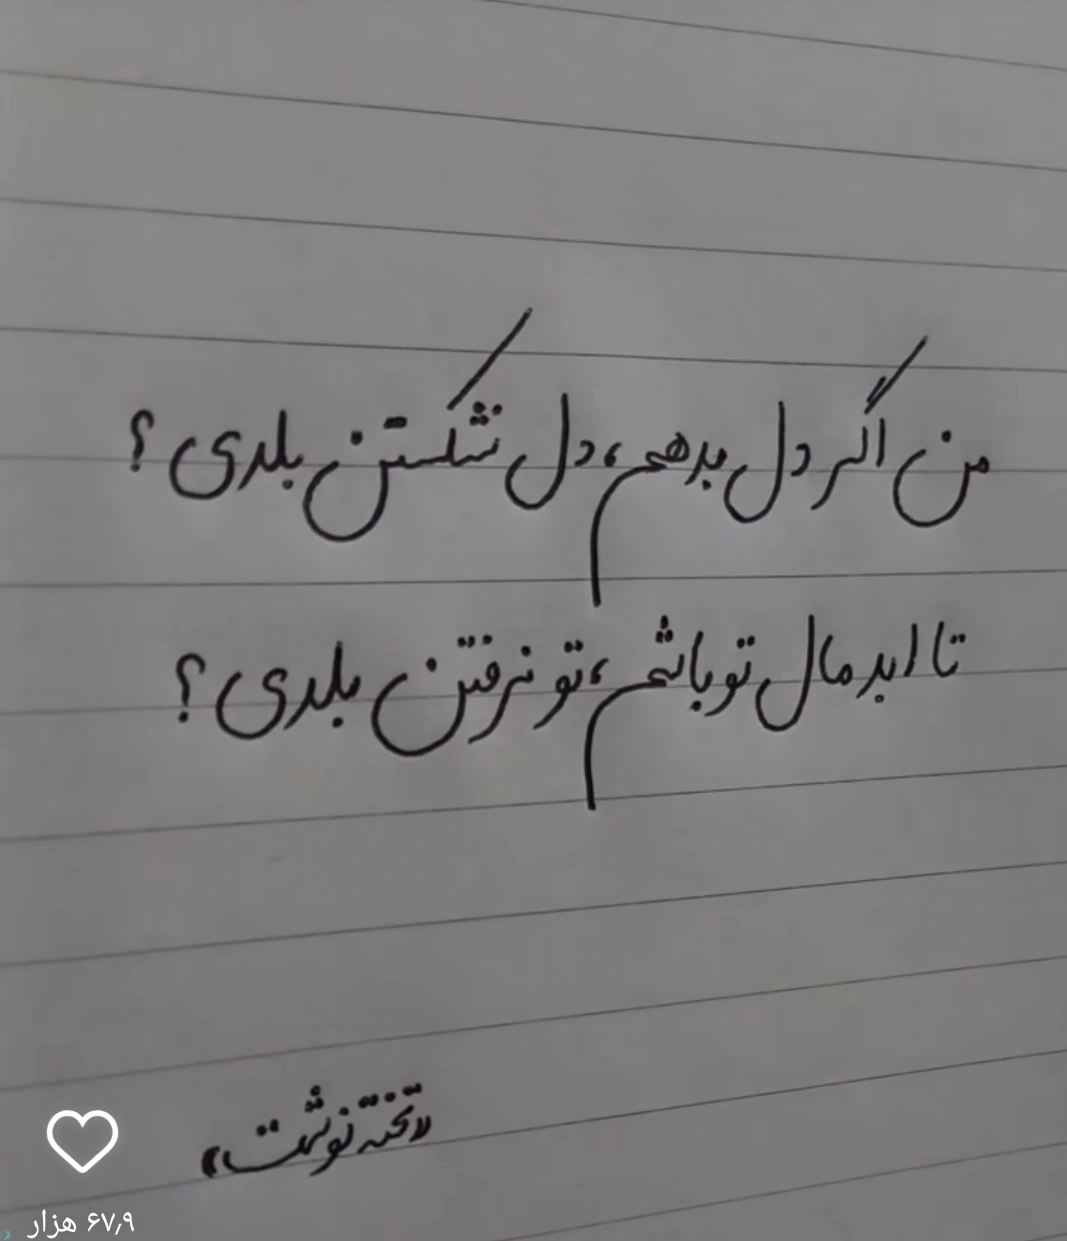 من اگر دل بدهم، دل شکستن بلدی؟
تا ابد مال تو باشم، تو نرفتن بلدی؟
«تخته نوشت»
۶۷٫۹ هزار